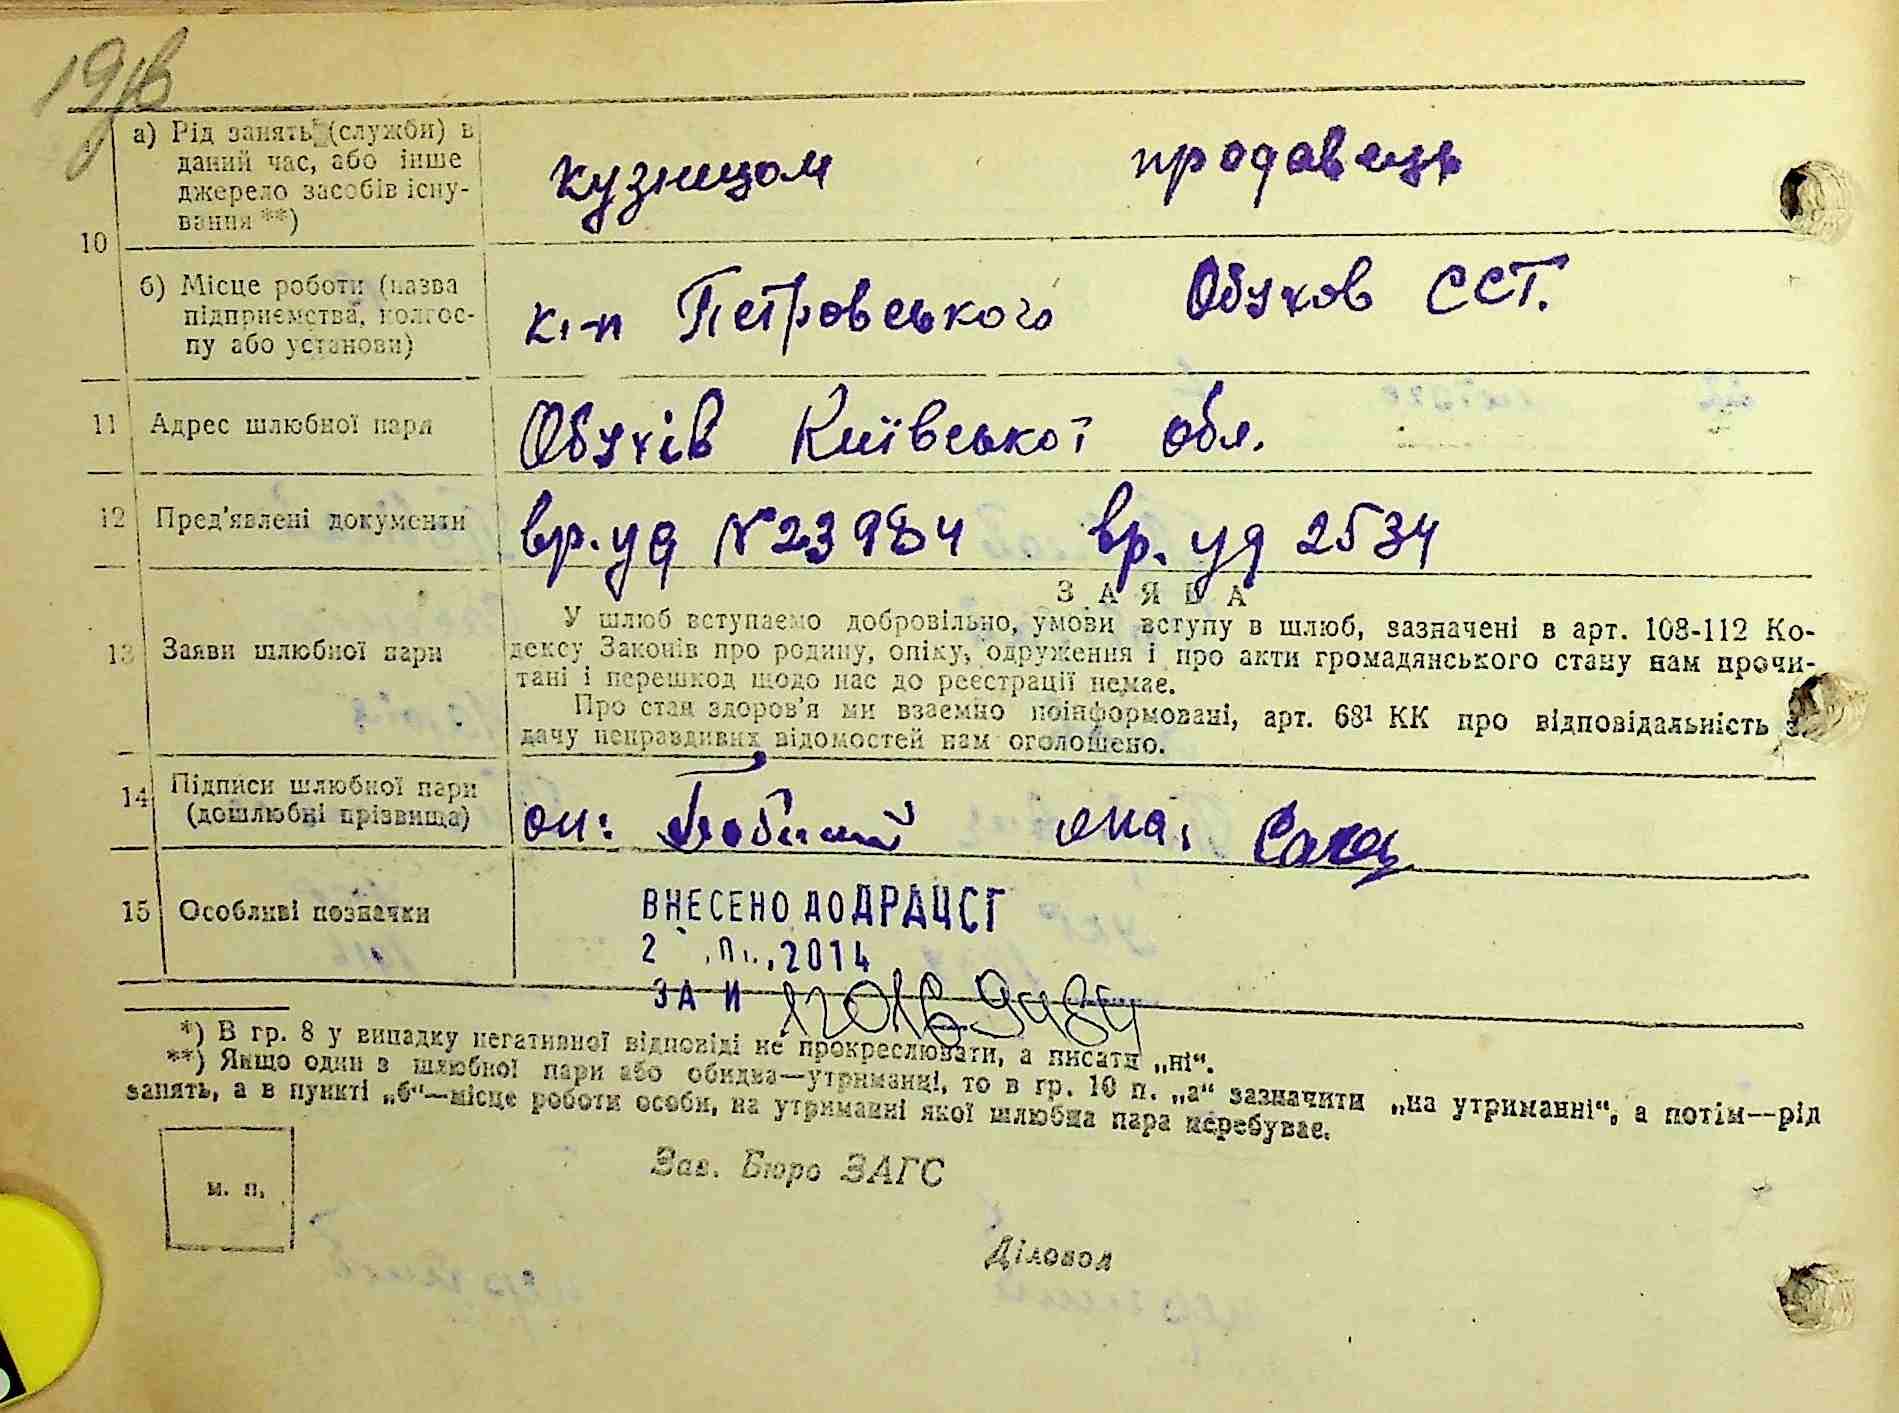 19
а) Рід занять (служби) в
даний час, або інше
джерело засобів існу-
вання **)
кузнецом продавець
10
б) Місце роботи (назва
підприємства, колгос-
пу або установи)
к-п Петровського Обухов ССТ.
11 Адрес шлюбної пари
Обухів Київської обл.
12 Пред'явлені документи
вр. уд №23984 вр. уд 2534
ЗАЯВА
13 Заяви шлюбної пари
У шлюб вступаємо добровільно, умови вступу в шлюб, зазначені в арт. 108-112 Ко-
дексу Законів про родину, опіку, одруження і про акти громадянського стану нам прочи-
тані і перешкод щодо нас до реєстрації немає.
Про стан здоров'я ми взаємно поінформовані, арт. 68¹ КК про відповідальність з
дачу неправдивих відомостей нам оголошено.
14 Підписи шлюбної пари
(дошлюбні прізвища)
он: она:
15 Особливі позначки
ВНЕСЕНО ДО ДРАЦСГ
2 2014
ЗА И
*) В гр. 8 у випадку негативної відповіді не прокреслювати, а писати „ні“.
**) Якщо один з шлюбної пари або обидва—утриманці, то в гр. 10 п. „а“ зазначити „на утриманні“, а потім—рід
занять, а в пункті „б“—місце роботи особи, на утриманні якої шлюбна пара перебуває.
Зав. Бюро ЗАГС
м. п.
Діловод